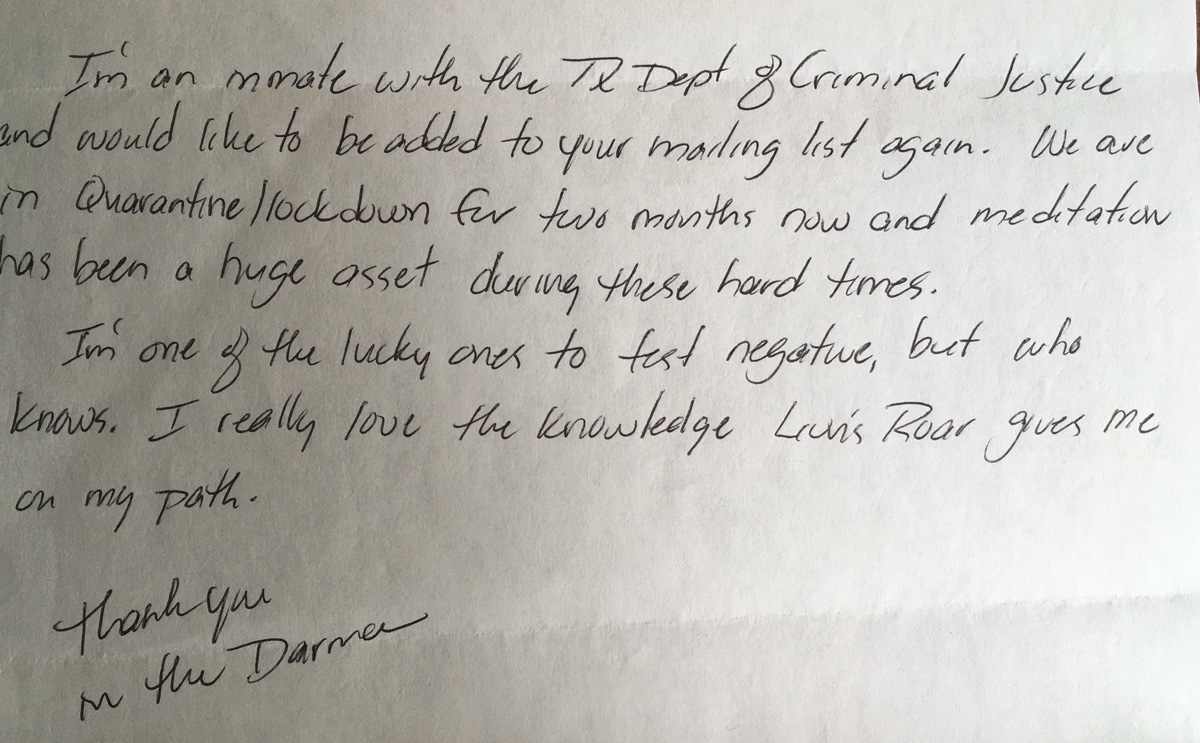 I'm an inmate with the TX Dept of Criminal Justice
and would like to be added to your mailing list again. We are
in Quarantine/lockdown for two months now and meditation
has been a huge asset during these hard times.
I'm one of the lucky ones to test negative, but who
knows. I really love the knowledge Lion's Roar gives me
on my path.
Thank you
in the Darma